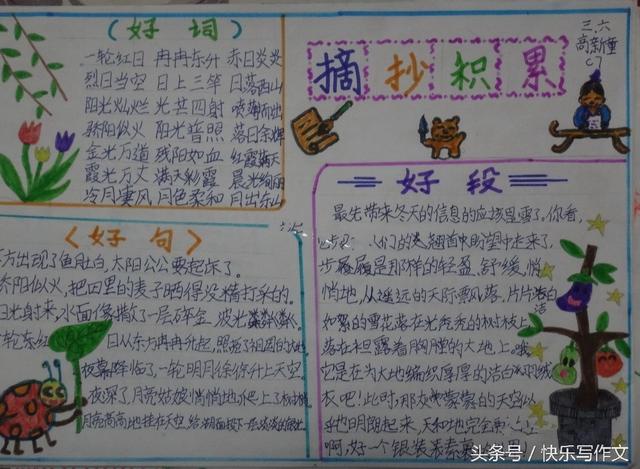 （好词）
一轮红日 冉冉东升 赤日炎炎
烈日当空 日上三竿 日落西山
阳光灿烂 光芒四射 喷薄而出
骄阳似火 阳光普照 落日余辉
金光万道 残阳如血 红霞满天
霞光万丈 满天彩霞 晨光绚丽
冷月凄风 月色柔和 月出东山
摘抄积累
三、六
高新童
C7
〈好句〉
方出现了鱼肚白，太阳公公要起床了。
骄阳似火，把四里的麦子晒得没精打采的。
阳光射来，水面像撒了一层碎金，波光粼粼。
一轮东红 日从东方冉冉升起，照亮了祖国的大地
夜幕降临了，一轮明月徐徐升上天空
夜深了，月亮姑娘悄悄地爬上了树梢
月亮高高地挂在天空，给湖面投下一层淡淡的银色
好段
最先带来冬天的信息的应该是雪了。你看，
人们的翘首盼望中走来了，
步履是那样的轻盈、舒缓，悄
悄地，从遥远的天际飘落，片片洁白
如絮的雪花落在光秃秃的树枝上
落在袒露着胸膛的大地上。哦
它是在为大地编织厚厚的洁白羽绒
衣吧！此时，那灰蒙蒙的天空似
乎也明朗起来，天和地完全
啊，好一个银装素裹
头条号 / 快乐写作文